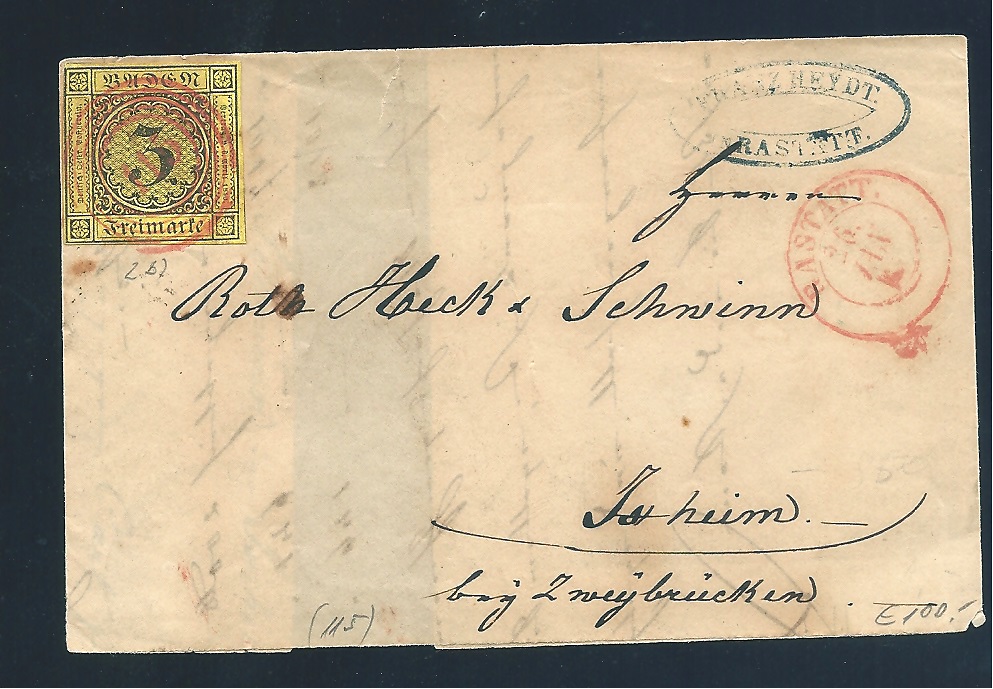 BADEN
3
Freimarke
FRANZ HEYDT.
RASTATT.
RASTATT.
Herren
2 b)
Roth Heck & Schwinn
Ixheim.
bey Zweybrücken
(115)
€ 100.-